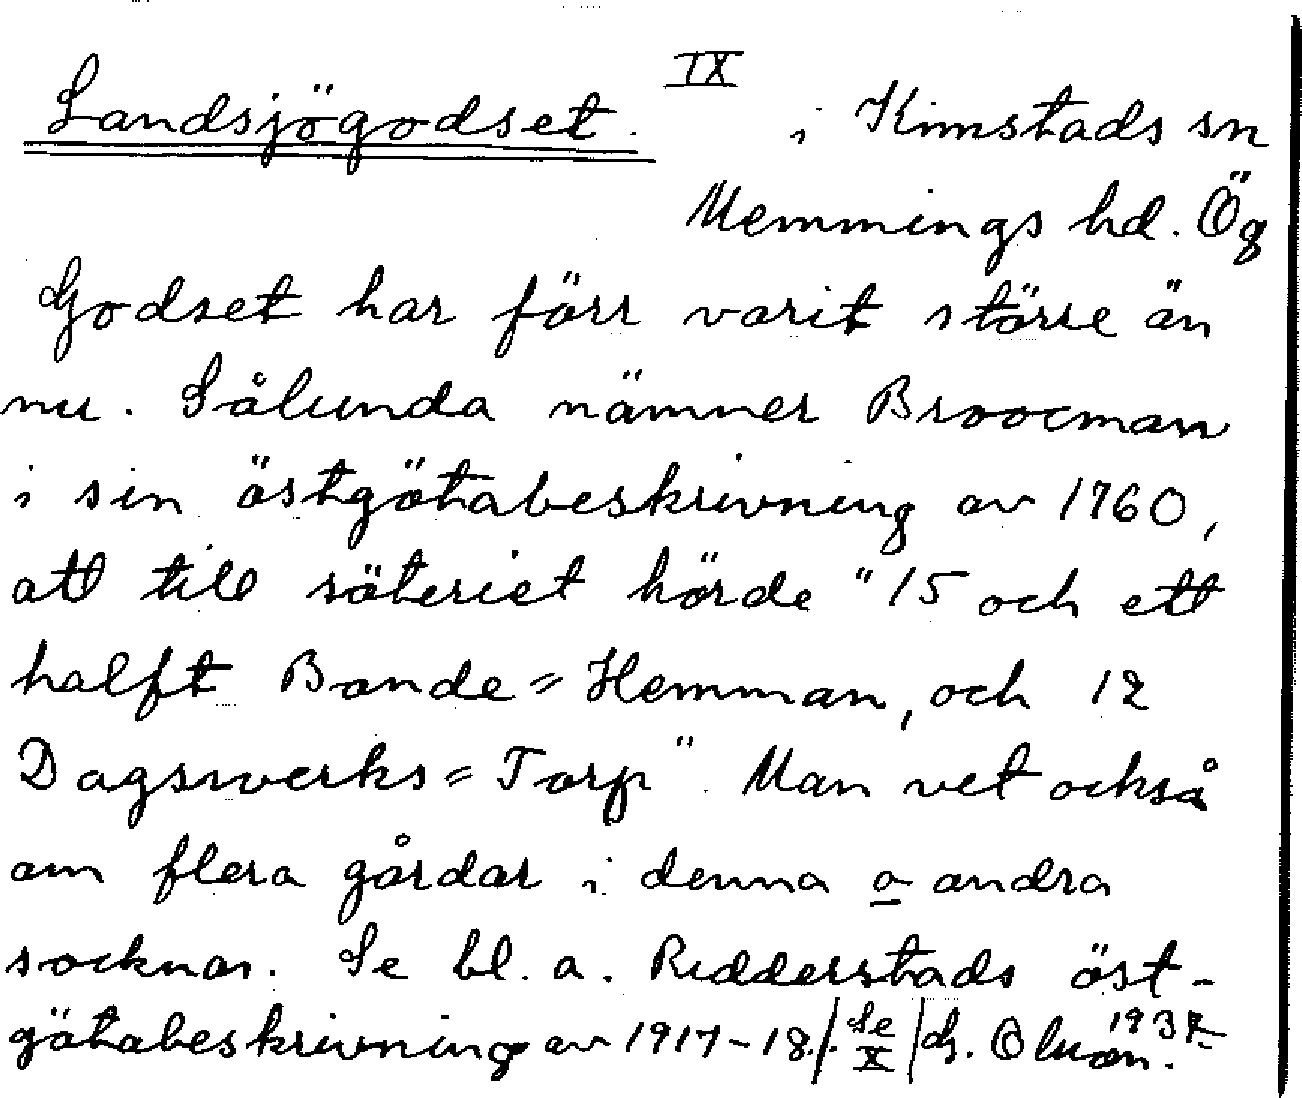 IX
Landsjögodset. i Kimstads sn
Memmings hd. Ög
Godset har förr varit större än
nu. Sålunda nämner Broocman
i sin östgötabeskrivning av 1760,
att till säteriet hörde "15 och ett
halft Bonde=Hemman, och 12
Dagswerks=Torp". Man vet också
om flera gårdar i denna o andra
socknar. Se bl. a. Ridderstads öst-
götabeskrivning av 1917-18. / Se X / G.